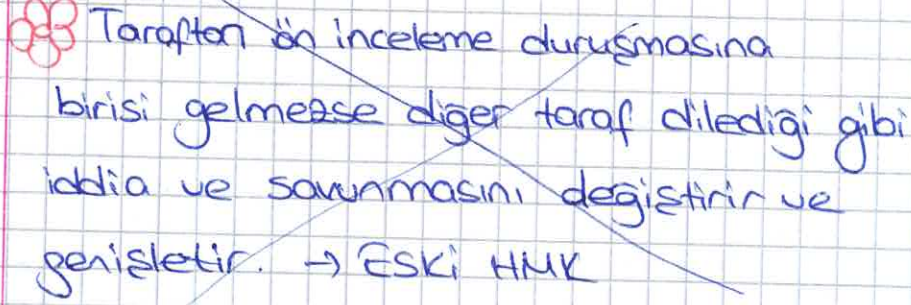 Taraftan ön inceleme duruşmasına
birisi gelmezse diğer taraf dilediği gibi
iddia ve savunmasını değiştirir ve
genişletir. → ESKİ HMK